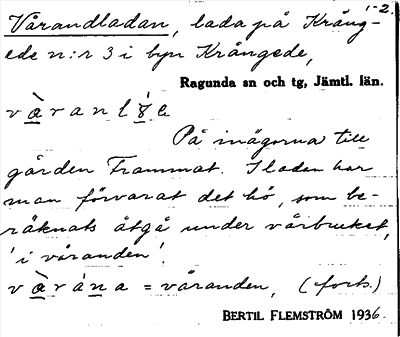 1-2.
Vårandladan, lada på Krång-
ede n:r 3 i byn Krångede,
Ragunda sn och tg, Jämtl. län.
På inägorna till
gården Frammat. I ladan har
man förvarat det hö, som be-
räknats åtgå under vårbruket,
'i våranden'.
= våranden, (forts.)
BERTIL FLEMSTRÖM 1936.